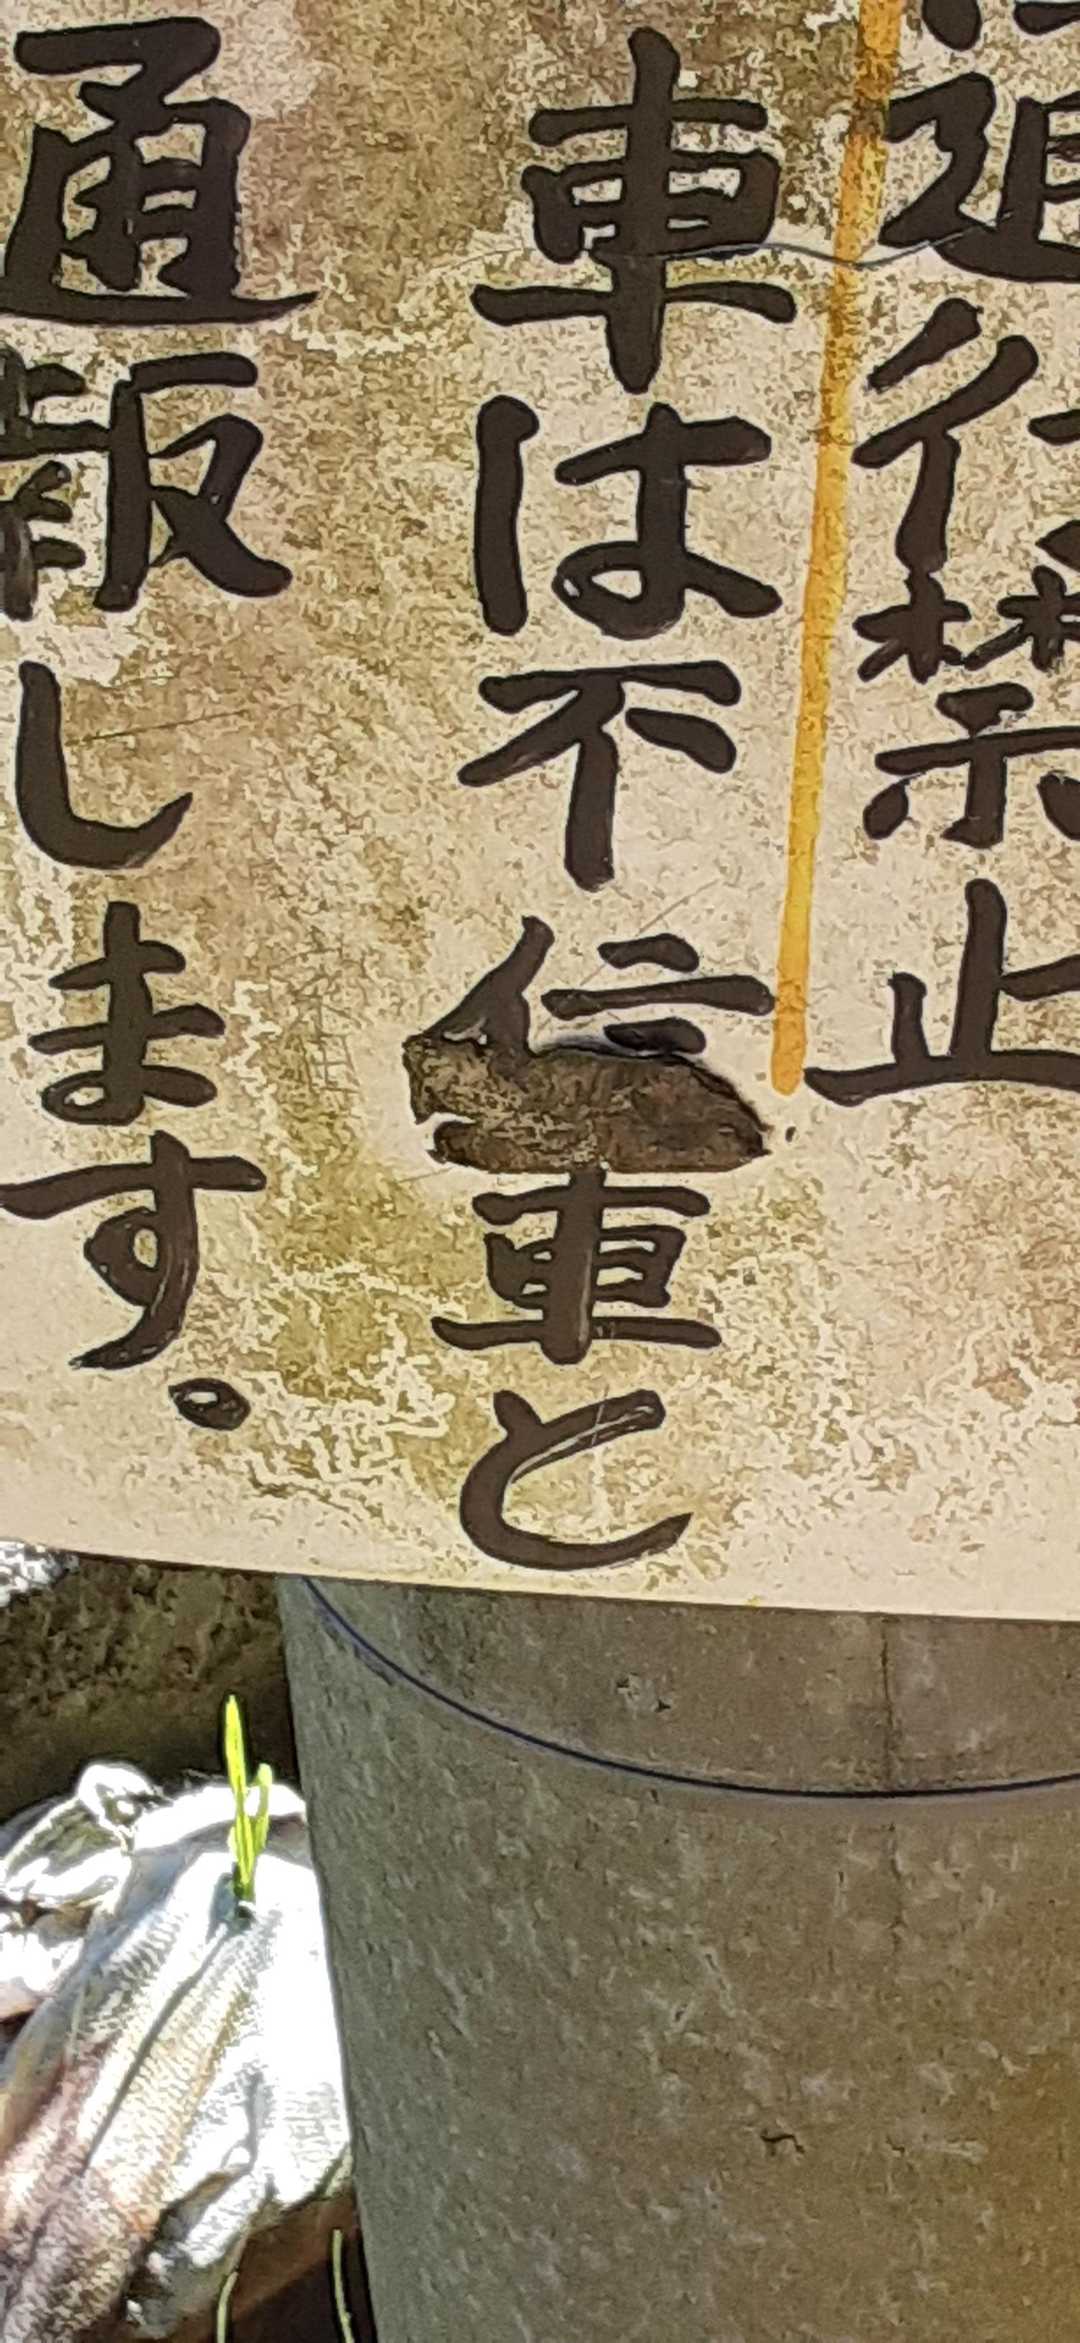 通行禁止
車は不信車と
通報します。